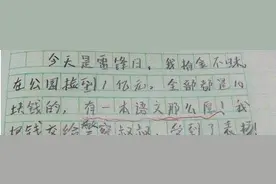 今天是雷锋日，我拾金不昧
在公园捡到1亿元。全部都是10
块钱的，有一本语文那么厚！我
把钱交给警察叔叔，受到了表扬！